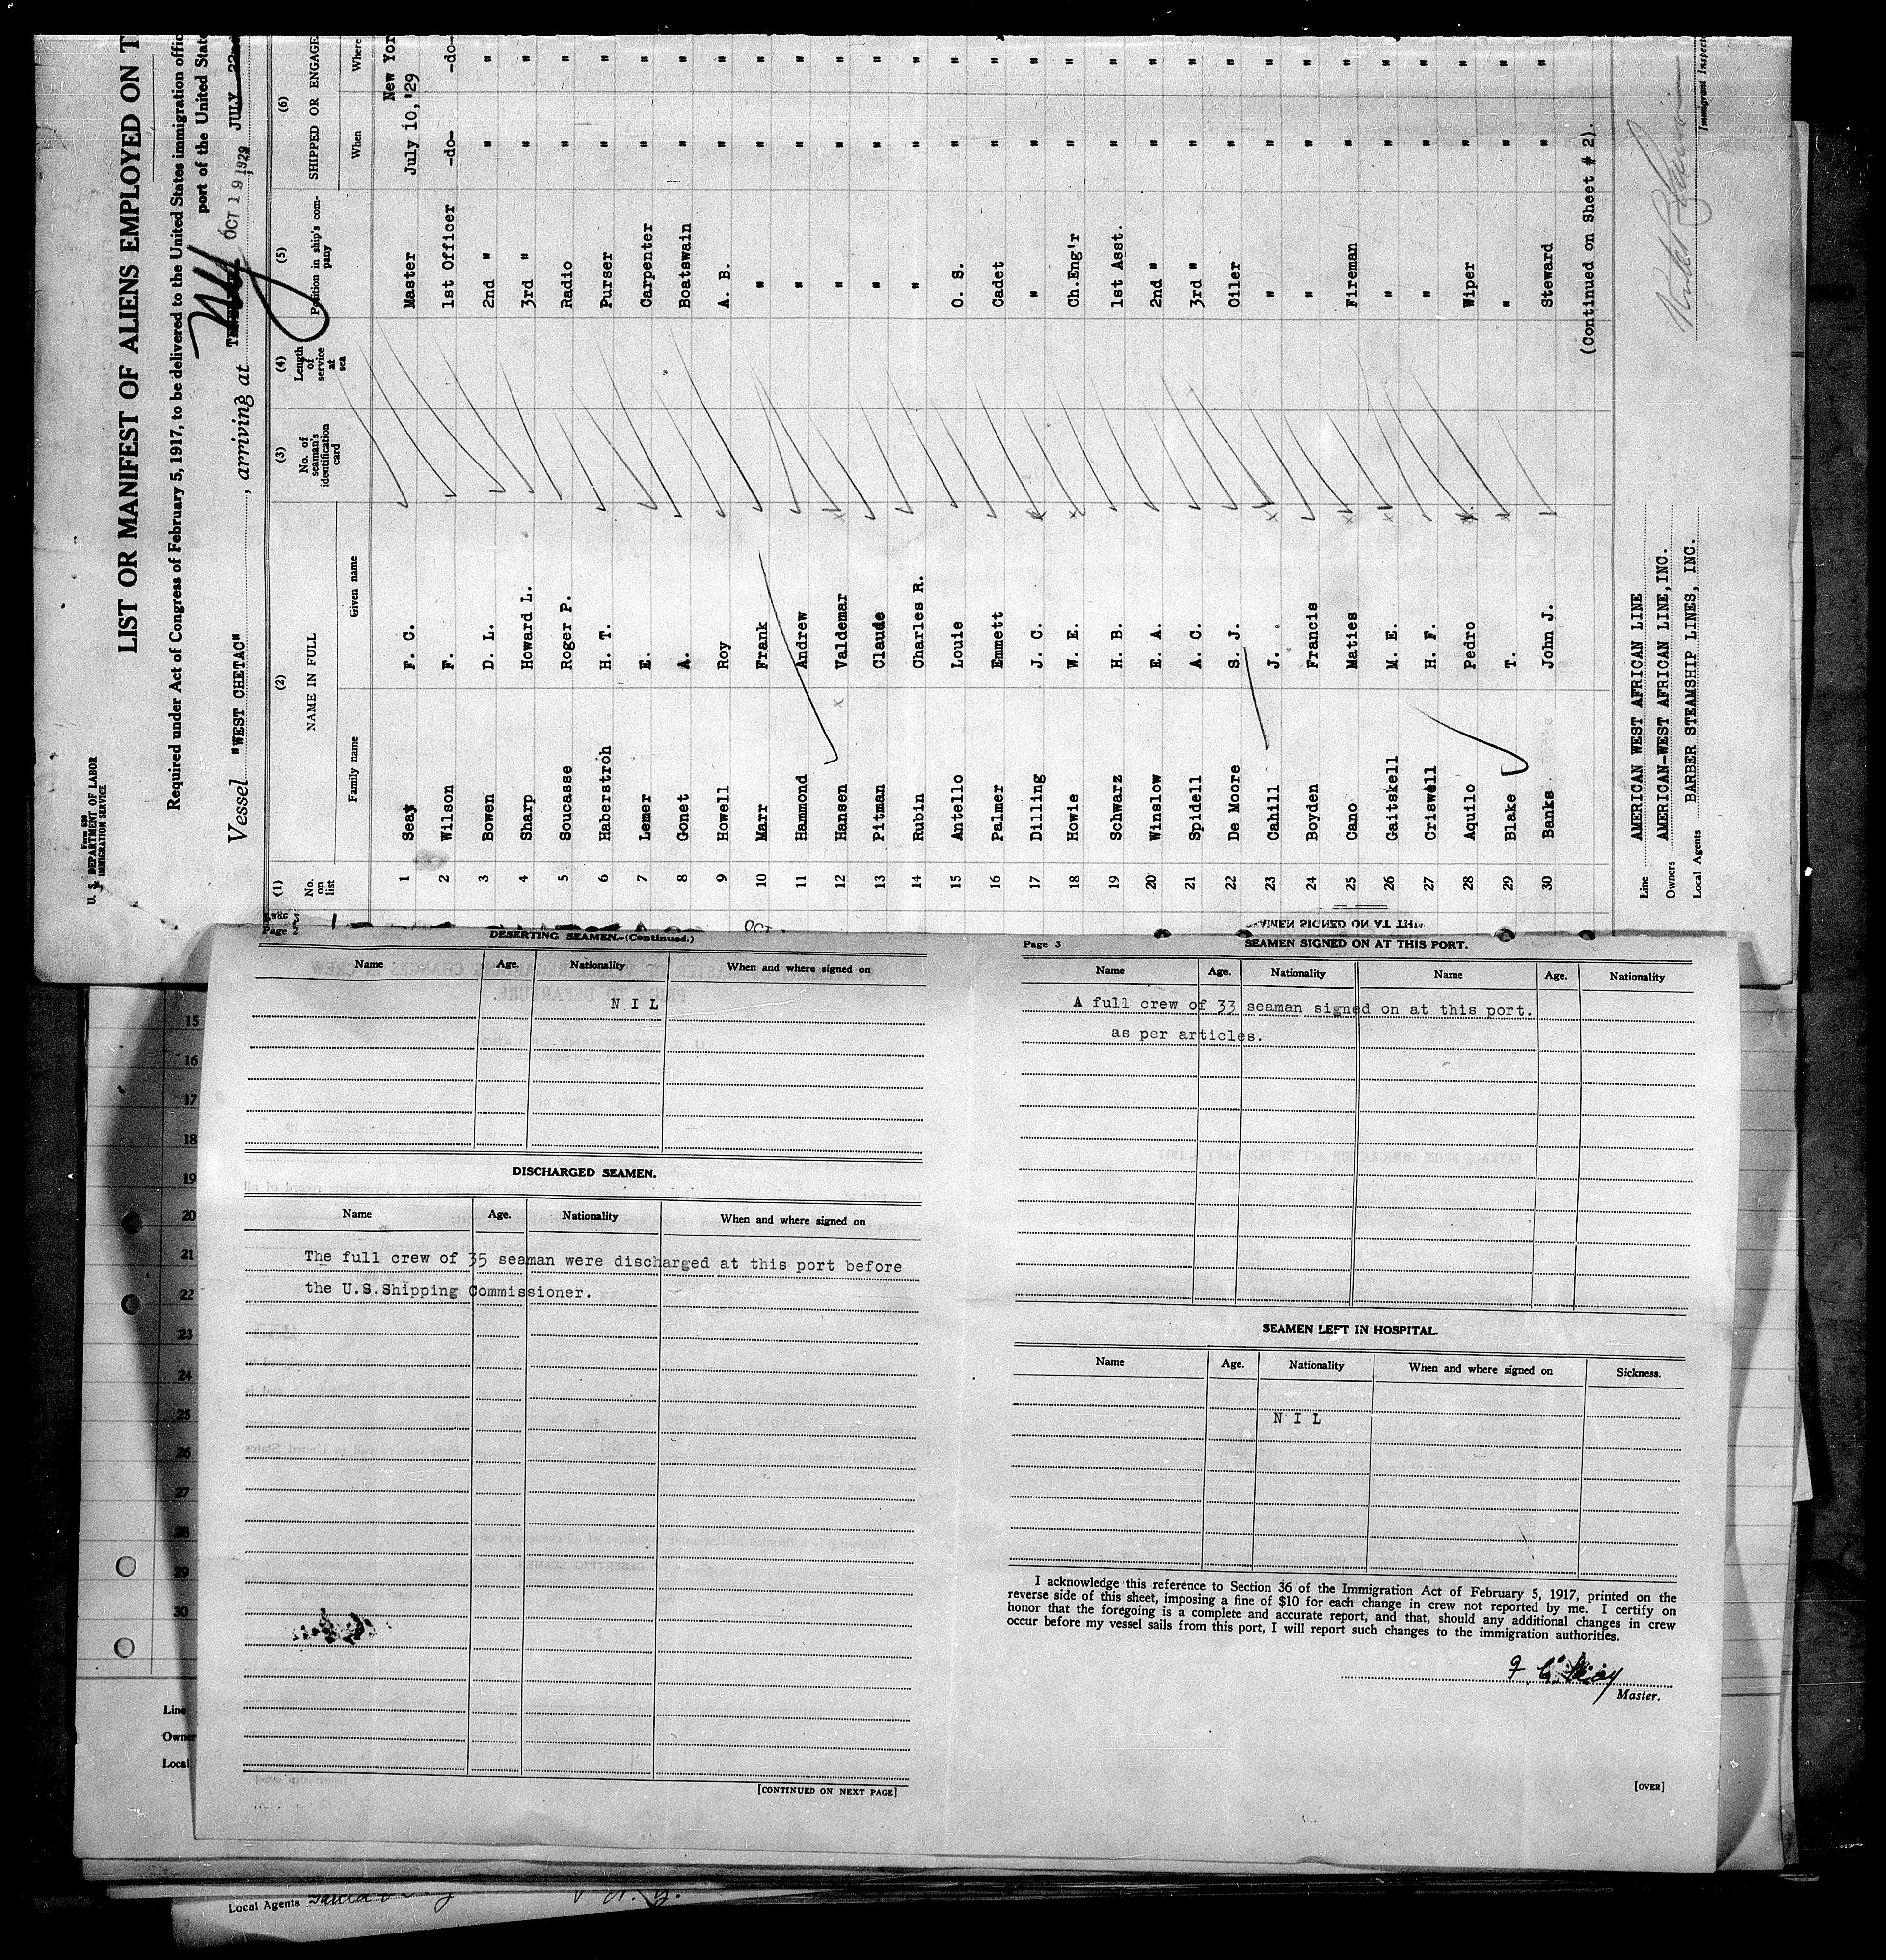 Form 680
U. S. DEPARTMENT OF LABOR
IMMIGRATION SERVICE
LIST OR MANIFEST OF ALIENS EMPLOYED ON T
Required under Act of Congress of February 5, 1917, to be delivered to the United States immigration offic
port of the United State
Vessel "WEST CHETAC", arriving at NY OCT 19 1929, JULY 22nd
(1) (2) (3) (4) (5) (6)
No. on list NAME IN FULL No. of seaman's identification card Length of service at sea Position in ship's company SHIPPED OR ENGAGE
Family name Given name When Where
1 Seay F. C. Master July 10,'29 New Yor
2 Wilson F. 1st Officer -do- -do-
3 Bowen D. L. 2nd " " "
4 Sharp Howard L. 3rd " " "
5 Soucasse Roger P. Radio " "
6 Haberstroh H. T. Purser " "
7 Lemer E. Carpenter " "
8 Gonet A. Boatswain " "
9 Howell Roy A. B. " "
10 Marr Frank " " "
11 Hammond Andrew " " "
12 Hansen Valdemar " " "
13 Pitman Claude " " "
14 Rubin Charles R. " " "
15 Antello Louie O. S. " "
16 Palmer Emmett Cadet " "
17 Dilling J. C. " " "
18 Howie W. E. Ch.Eng'r " "
19 Schwarz H. B. 1st Asst. " "
20 Winslow E. A. 2nd " " "
21 Spidell A. C. 3rd " " "
22 De Moore S. J. Oiler " "
23 Cahill J. " " "
24 Boyden Francis " " "
25 Cano Maties Fireman " "
26 Gaitskell M. E. " " "
27 Criswell H. F. " " "
28 Aquilo Pedro Wiper " "
29 Blake T. " " "
30 Banks John J. Steward " "
(Continued on Sheet # 2).
Line AMERICAN WEST AFRICAN LINE
Owners AMERICAN-WEST AFRICAN LINE, INC.
Local Agents BARBER STEAMSHIP LINES, INC.
Immigrant Inspect
Page 2
DESERTING SEAMEN.—(Continued.)
Name Age. Nationality When and where signed on
N I L
DISCHARGED SEAMEN.
Name Age. Nationality When and where signed on
The full crew of 35 seaman were discharged at this port before
the U.S.Shipping Commissioner.
[CONTINUED ON NEXT PAGE]
Page 3
SEAMEN SIGNED ON AT THIS PORT.
Name Age. Nationality Name Age. Nationality
A full crew of 33 seaman signed on at this port.
as per articles.
SEAMEN LEFT IN HOSPITAL.
Name Age. Nationality When and where signed on Sickness.
N I L
I acknowledge this reference to Section 36 of the Immigration Act of February 5, 1917, printed on the
reverse side of this sheet, imposing a fine of $10 for each change in crew not reported by me. I certify on
honor that the foregoing is a complete and accurate report, and that, should any additional changes in crew
occur before my vessel sails from this port, I will report such changes to the immigration authorities.
F C Seay
Master.
[OVER]
15
16
17
18
19
20
21
22
23
24
25
26
27
28
29
30
Line
Owner
Local
Local Agents